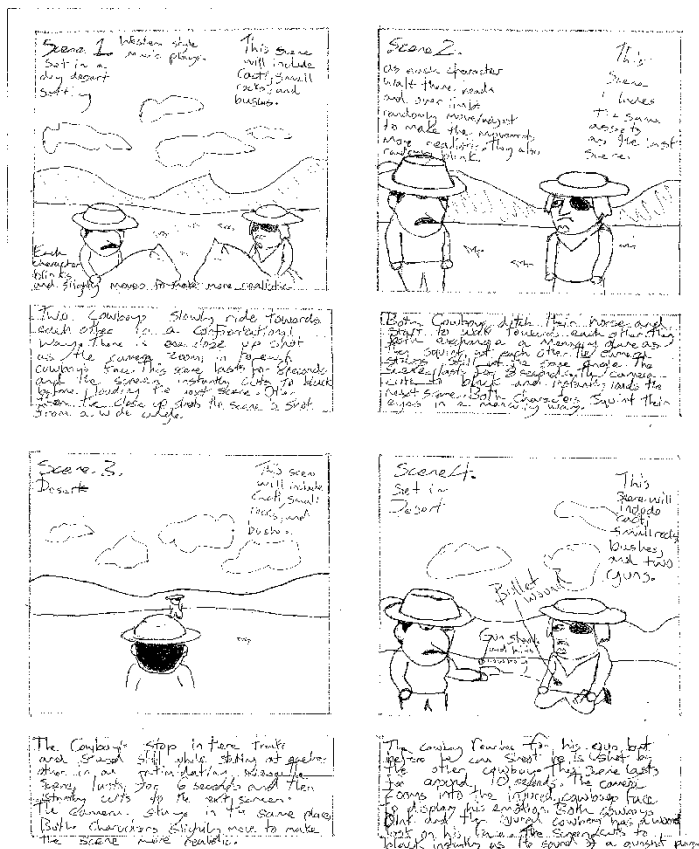 Scene 1. Western style
music plays.
Set in a
dry desert
Setting
This scene
will include
Cacti, small
rocks, and
bushes.
Each
character
blinks
and slightly moves to make more realistic
Two Cowboys slowly ride towards
each other in a confrontational
way. There is one close up shot
as the camera zooms in to each
cowboys face. This scene lasts for 8 seconds
and the screen instantly cuts to black
before loading the next scene. Other
from the close up shots the scene is shot
from a wide angle.
Scene 2.
as each character
walk there heads
and over limbs
randomly move/adjust
to make the movements
more realistic. They also
randomly blink.
This
Scene
includes
The same
assets
as the last
Scene.
Both Cowboys ditch their horse and
start to walk towards each other. They
both exchange a menacing glare as
they squint at each other. The camera
stays still at the same angle. The
scene lasts for 8 seconds. The camera
cuts to black and instantly loads the
next scene. Both characters squint their
eyes in a menacing way.
Scene. 3.
Desert
This scene
will include
Cacti, small
rocks, and
bushes.
The Cowboys stop in there tracks
and stand still while staring at each
other in an intimidating
Scene lasts for 6 seconds and then
instantly cuts to the next screen.
The camera stays in the same place
Both Characters slightly move to make
the scene more realistic.
Scene 4.
Set in
Desert
This
scene will
include
cacti,
small rocks,
bushes,
and two
guns.
Bullet
wound
Gun shoots
and hits
cowboy
The cowboy reaches for his gun but
before he can shoot he is shot by
the other cowboy. This scene lasts
for around 10 seconds. The camera
zooms into the injured cowboys face
to display his emotion. Both cowboys
blink and the injured cowboy has a
look on his face. The Screen cuts to
black instantly as the sound of a gunshot plays